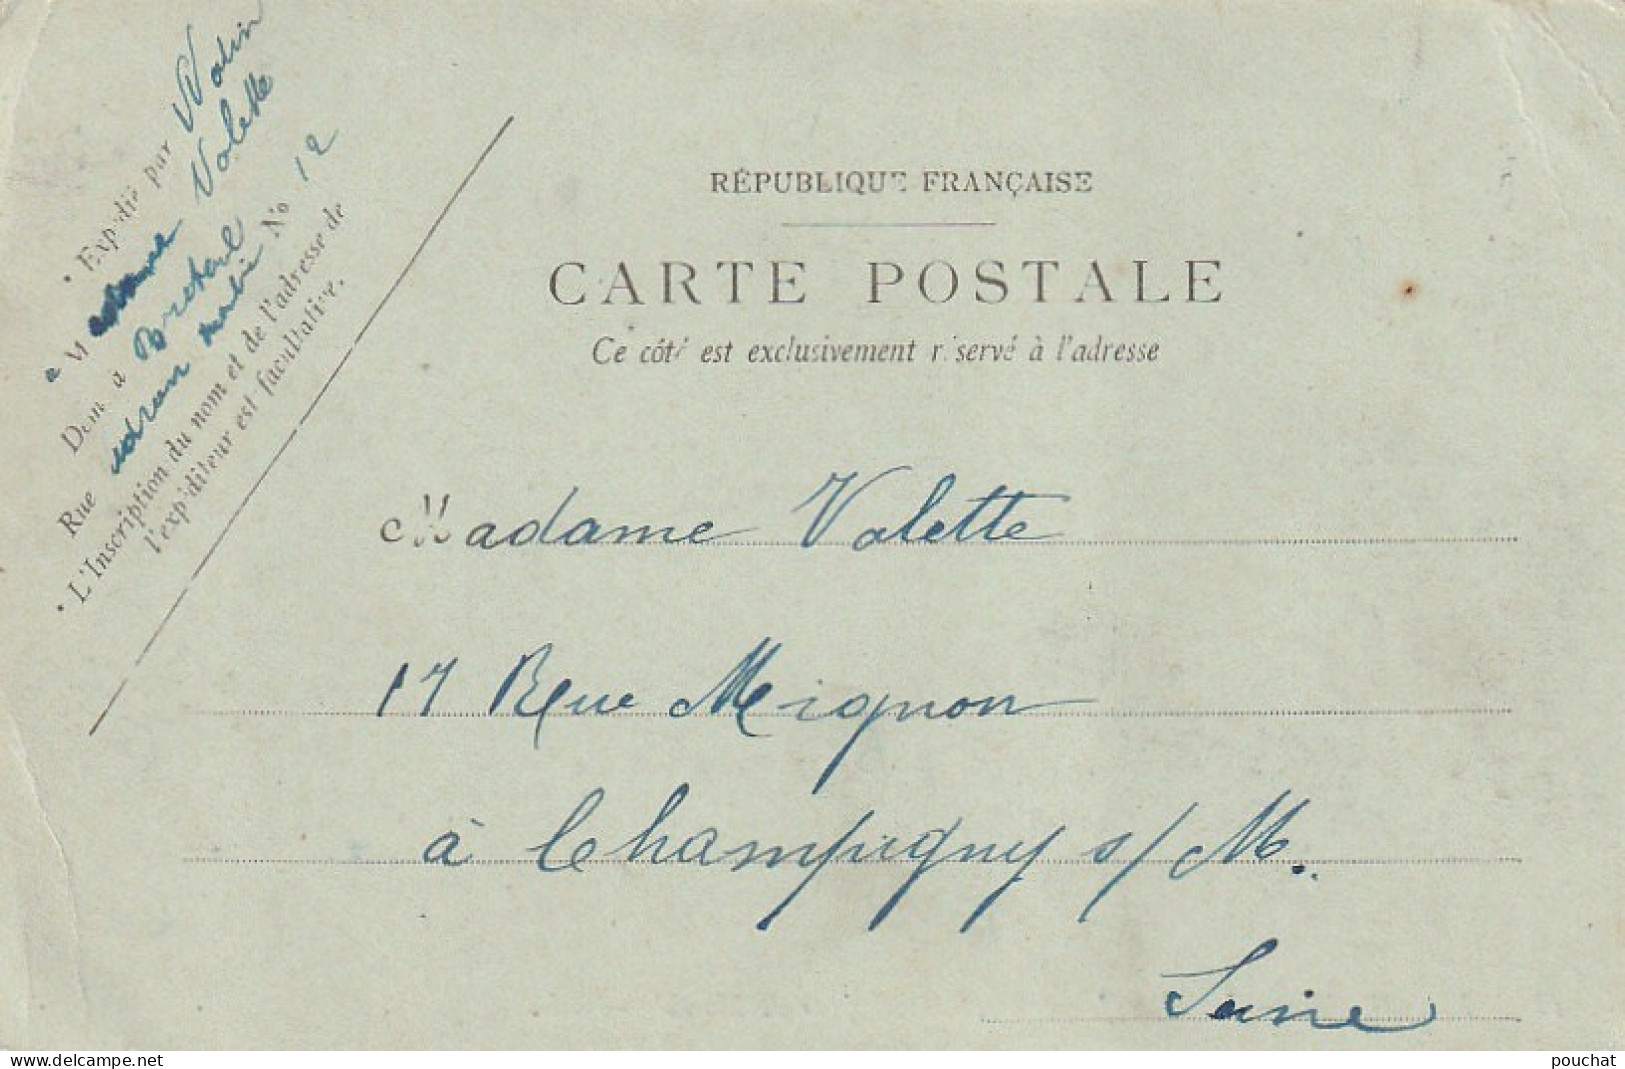 Expédié par
Valette
M
Dem. à
Rue N° 12
L'Inscription du nom et de l'adresse de
l'expéditeur est facultative.
RÉPUBLIQUE FRANÇAISE
CARTE POSTALE
Ce côté est exclusivement réservé à l'adresse
Madame Valette
17 Rue Mignon
à Champigny s/ M.
Seine
www.delcampe.net
pouchat